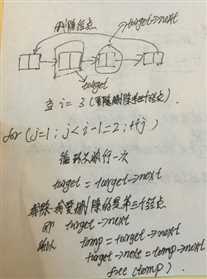 删除结点
target->next
target
当 i = 3 (要删除第三个结点)
for (j=1; j<i-1=2; j++)
循环只执行一次
target = target->next
我要删除的是第三个结点
即 target->next
所以 temp = target->next
target->next = temp->next
free(temp).